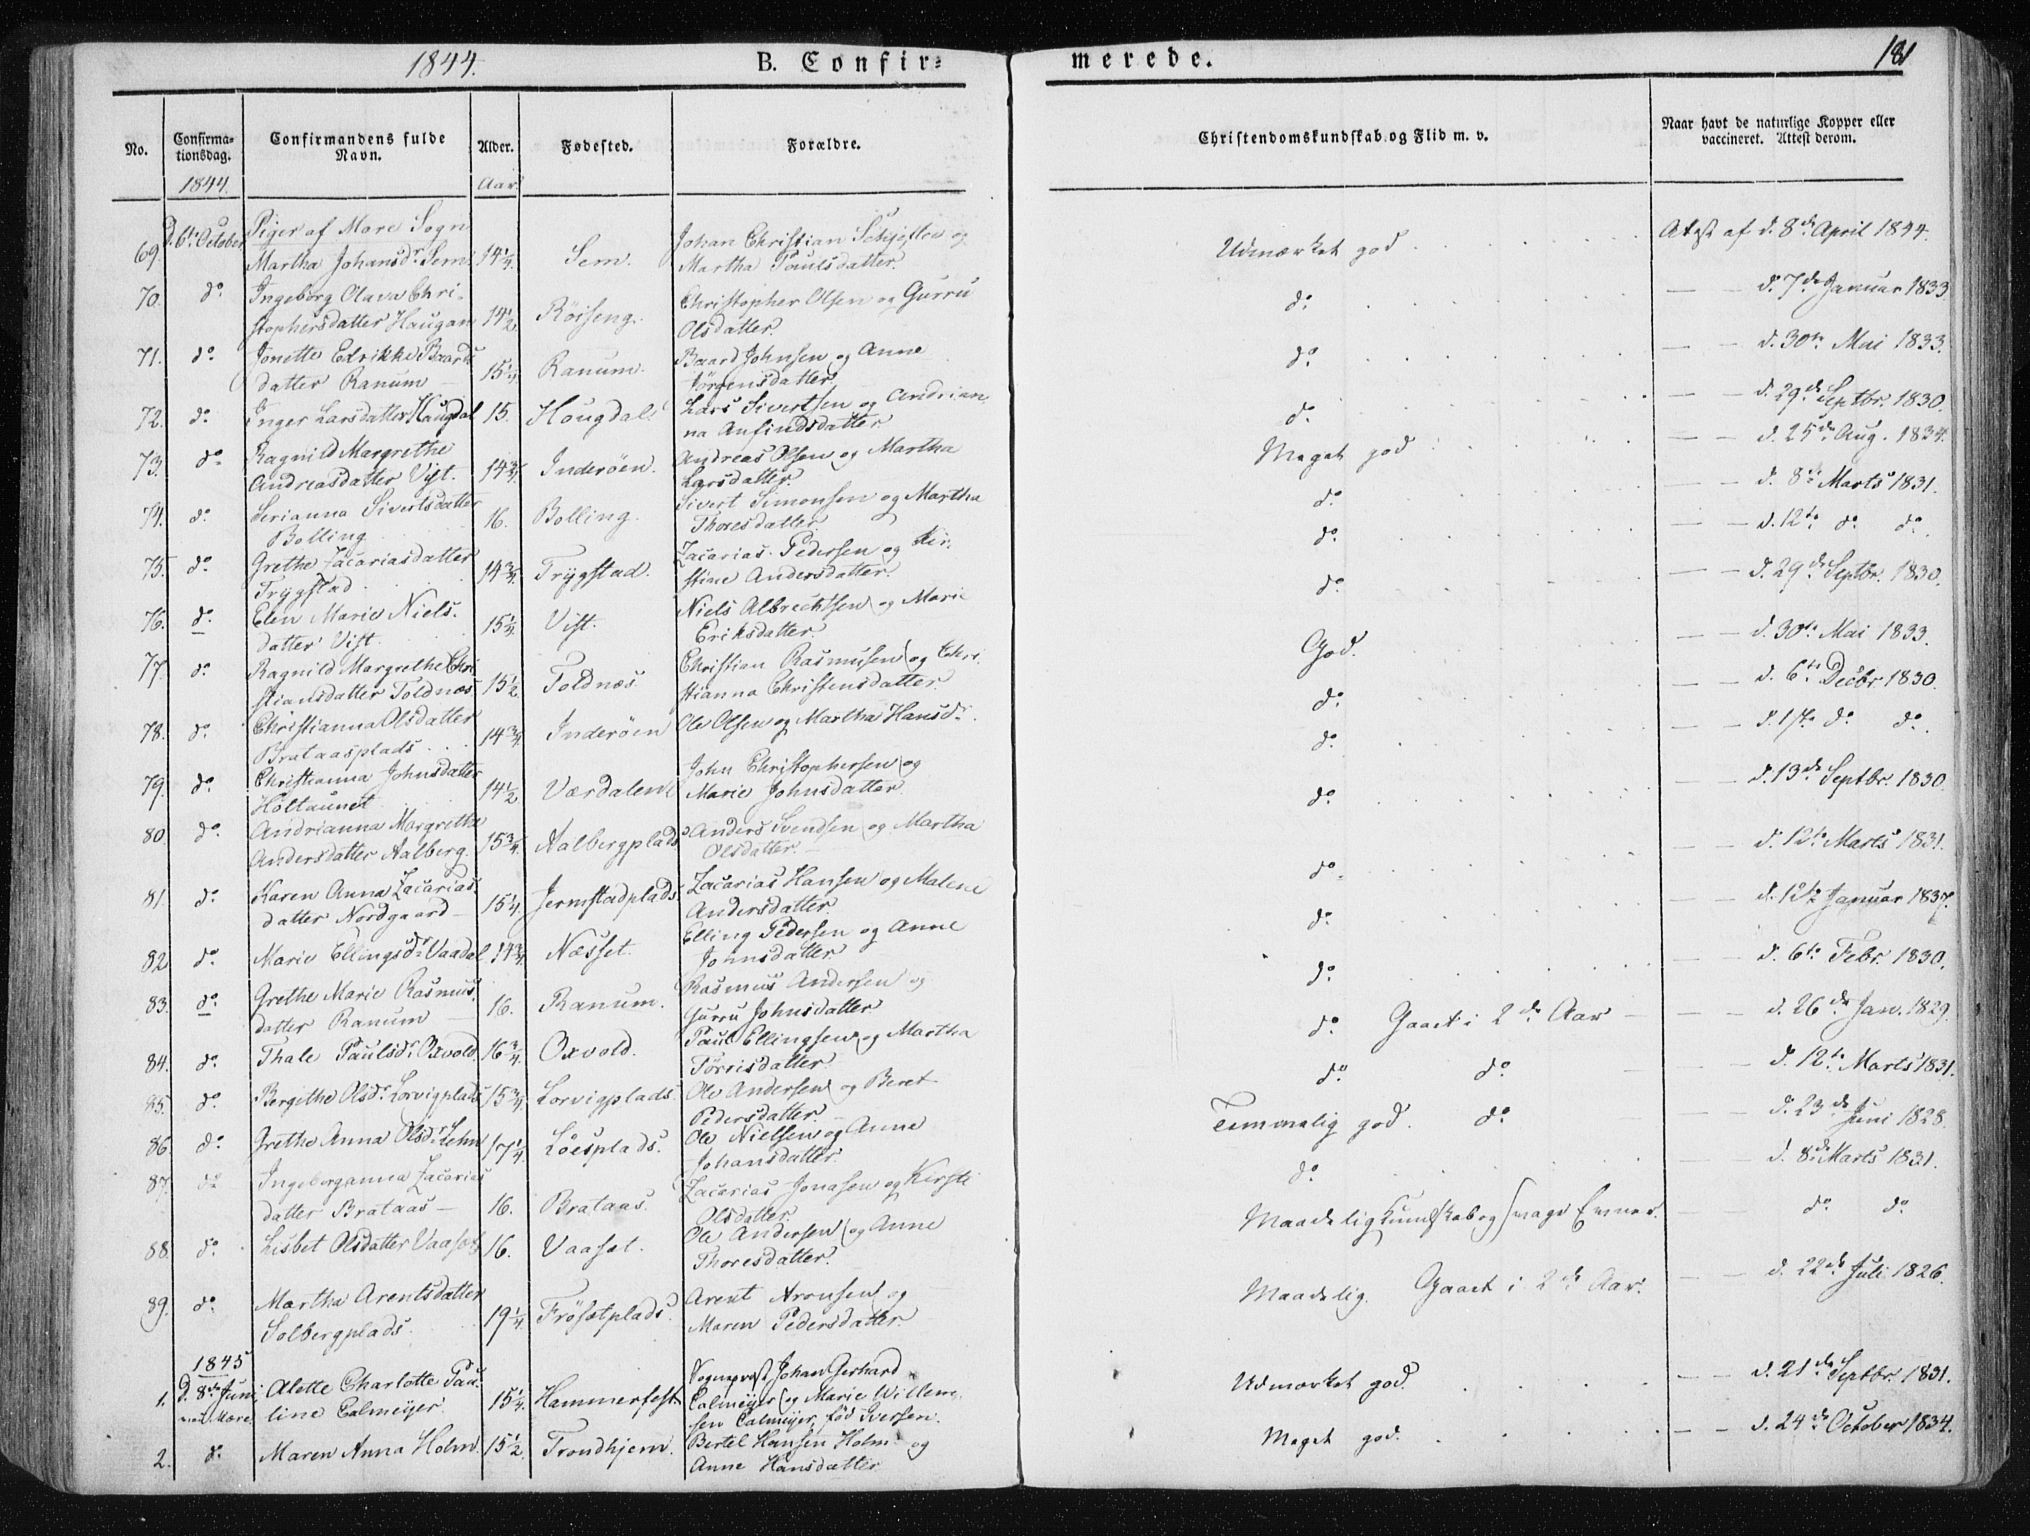 1844. B. Confir= merede. 181
No. Confirma-tionsdag. Confirmandens fulde Navn. Alder. Fødested. Forældre. Christendomskundskab og Flid m. v. Naar havt de naturlige Kopper eller vaccineret. Attest derom.
1844. Aar.
Piger af Mære Sogn
69. d. 6te October Martha Johansdr. Sem 14 1/4. Sem. Johan Christian Schjefter og Martha Paulsdatter. Udmærket god. Atest af d. 8de April 1844.
70. do. Ingeborg Olava Chri-
stophersdatter Haugan 14 1/2. Röiseng. Christopher Olsen og Gurru Olsdatter. do. — — d. 7de Januar 1833
71. do. Jonette Edrikke Baards
datter Ranum — 15 1/4. Ranum. Baard Johnsen og Anne Jörgensdatter. do. — — d. 30te Mai 1833.
72. do. Inger Larsdatter Haugdal 15. Hougdal. Lars Sivertsen og Andrian-
na Anfindsdatter do. — — d. 29de Septbr. 1830.
73. do. Ragnild Margrethe
Andreasdatter Vist. 14 3/4. Inderöen. Andreas Olsen og Martha Larsdatter. Meget god — — d. 25de Aug. 1834.
74. do. Serianna Sivertsdatter
Bolling 16. Bolling. Sivert Simonsen og Martha Thoresdatter. do. — — d. 8de Marts 1831.
75. do. Grethe Zacariasdatter
Trygstad 14 3/4. Trygstad. Zacarias Pedersen og Kir-
stine Andersdatter. do. — — d. 12te do. do.
76. do. Elen Marie Niels-
datter Vist. 15 1/4. Vist. Niels Albrechtsen og Marie Eriksdatter. do. — — d. 29de Septbr. 1830.
77. do. Ragnild Margrethe Chri-
stiansdatter Toldnæs 15 1/2. Toldnæs. Christian Rasmusen og Chri-
stianna Christensdatter. God. — — d. 30te Mai 1833.
78. do. Christianna Olsdatter
Brataasplads 14 3/4. Inderöen Ole Olsen og Martha Hansdr. do. — — d. 6te Decbr 1830.
79. do. Christianna Johnsdatter
Holtaunet 14 1/2. Værdalen John Christophersen og Marie Johnsdatter. do. — — d. 17de do. do.
80. do. Andrianna Margrethe
Andersdatter Aalberg. 15 3/4. Aalbergplads Anders Svendsen og Martha Olsdatter. do. — — d. 13de Septbr. 1830.
81. do. Karen Anna Zacarias
datter Nordgaard — 15 1/4. Jermstadplads Zacarias Hansen og Malene Andersdatter do. — — d. 12te Marts 1831.
82. do. Marie Ellingsdr. Vaadal 14 3/4. Næsset. Elling Pedersen og Anne Johnsdatter do. — — d. 12te Januar 1837.
83. do. Grethe Marie Rasmus-
datter Ranum — 16. Ranum. Rasmus Andersen og Gurru Johnsdatter do. — — d. 6te Febr. 1830.
84. do. Thale Paulsdr. Oxvold 16 3/4. Oxvold. Paul Ellingsen og Martha Törrisdatter. do. Gaaet i 2det Aar — — d. 26de Jan. 1829.
85. do. Bergithe Olsdr. Lorvigplads 15 3/4. Lorvigplads. Ole Andersen og Beret Pedersdatter do. do. d. 12te Marts 1831.
86. do. Grethe Anna Olsdr. Lehn 17 1/4. Löesplads. Ole Nielsen og Anne Johansdatter. Temmelig god. do. — — d. 23de Juni 1828.
87. do Ingeborganna Zacarias
datter Brataas — 16. Brataas. Zacarias Jonasen og Kirsti Olsdatter. do. — — d. 8de Marts 1831.
88. do. Lisbet Olsdatter Vaaset 16. Vaaset. Ole Andersen og Anne Thoresdatter. Maadelig Kundskab og svage Evner. — do. do.
89. do. Martha Arentsdatter
Solbergplads. 19 1/4. Frösetplads. Arent Aronsen og Maren Pedersdatter. Maadelig. Gaaet i 2det Aar. — — d. 22de Juli 1826.
1845
1. d. 8de Juni Mære Alette Charlotte Pau-
line Calmeijer. 15 1/4. Hammerfest Sogneprest Johan Gerhard
Calmeijer og Marie Willem-
sen Calmeijer, född Iversen. Udmærket god. — — d. 21de Septbr 1831.
2. do. Maren Anna Holm. 15 1/2. Trondhjem. Bertel Hansen Holm og
Anne Hansdatter Meget god. — — d. 24de October 1834.